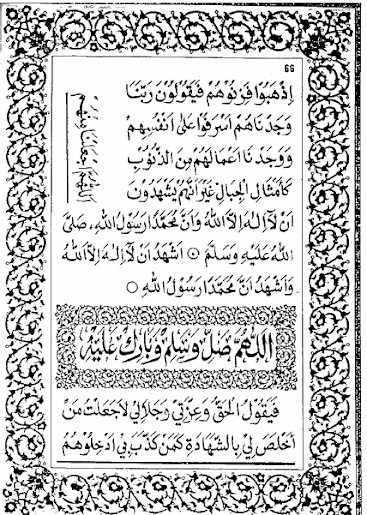 ٤٤
اِذْهَبُوْا فَزِنُوْهُمْ فَيَقُوْلُوْنَ رَبَّنَا
وَجَدْنَاهُمْ اَسْرَفُوْا عَلٰى اَنْفُسِهِمْ
وَوَجَدْنَا اَعْمَالَهُمْ مِنَ الذُّنُوْبِ
كَاَمْثَالِ الْجِبَالِ غَيْرَ اَنَّهُمْ يَشْهَدُوْنَ
اَنْ لَّا اِلٰهَ اِلَّا اللّٰهُ وَاَنَّ مُحَمَّدًا رَسُوْلُ اللّٰهِ، صَلَّى
اللّٰهُ عَلَيْهِ وَسَلَّمَ ۞ اَشْهَدُ اَنْ لَّا اِلٰهَ اِلَّا اللّٰهُ
وَاَشْهَدُ اَنَّ مُحَمَّدًا رَسُوْلُ اللّٰهِ ○
اَللّٰهُمَّ صَلِّ وَسَلِّمْ وَبَارِكْ عَلَيْهِ
فَيَقُوْلُ الْحَقُّ وَعِزَّتِيْ وَجَلَالِيْ لَاجَعَلْتُ مَنْ
اَخْلَصَ لِيْ بِالشَّهَادَةِ كَمَنْ كَذَّبَ بِيْ اَدْخِلُوْهُمُ